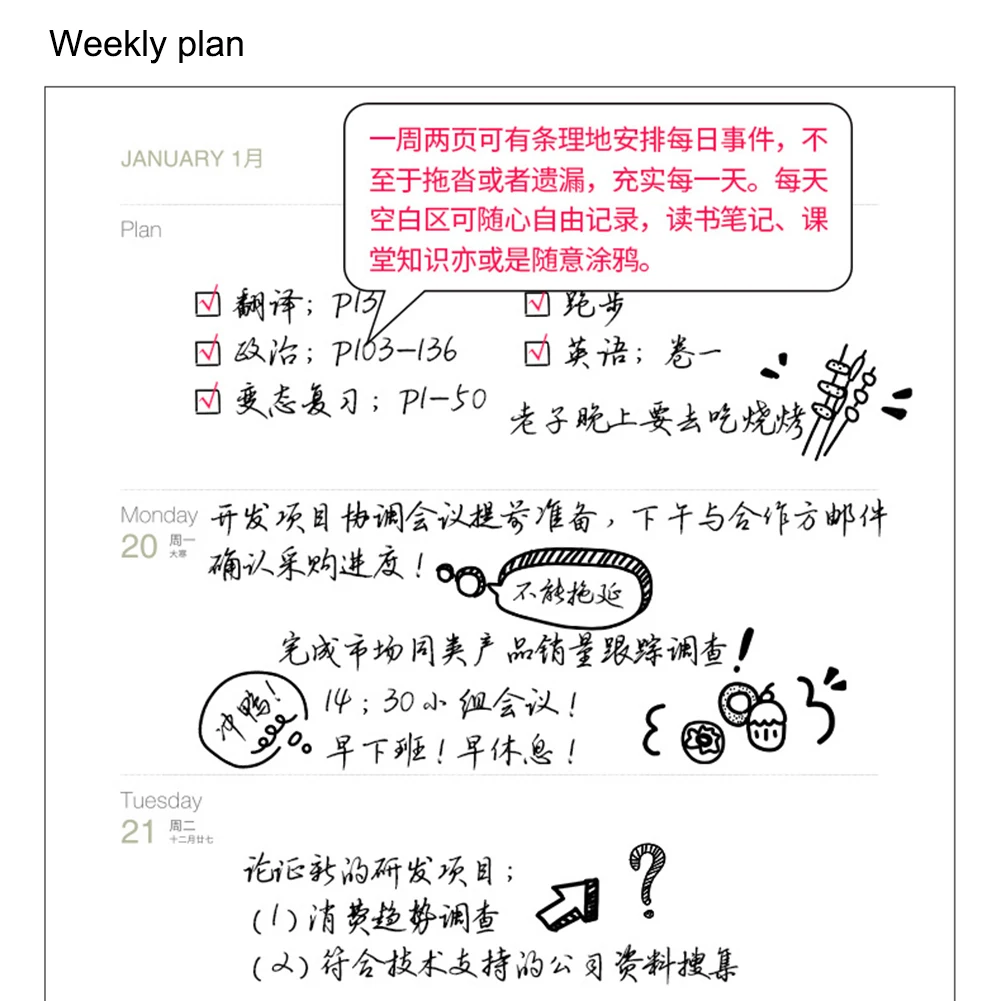 Weekly plan
JANUARY 1月
一周两页可有条理地安排每日事件，不
至于拖沓或者遗漏，充实每一天。每天
空白区可随心自由记录，读书笔记、课
堂知识亦或是随意涂鸦。
Plan
翻译；P13
跑步
政治；P103-136
英语；卷一
变态复习；P1-50
老子晚上要去吃烧烤
Monday
20 周一
大寒
开发项目协调会议提前准备，下午与合作方邮件
确认采购进度！
不能拖延
完成市场同类产品销量跟踪调查！
冲鸭！
14；30小组会议！
早下班！早休息！
Tuesday
21 周二
十二月廿七
论证新的研发项目；
(1)消费趋势调查
(2)符合技术支持的公司资料搜集
?